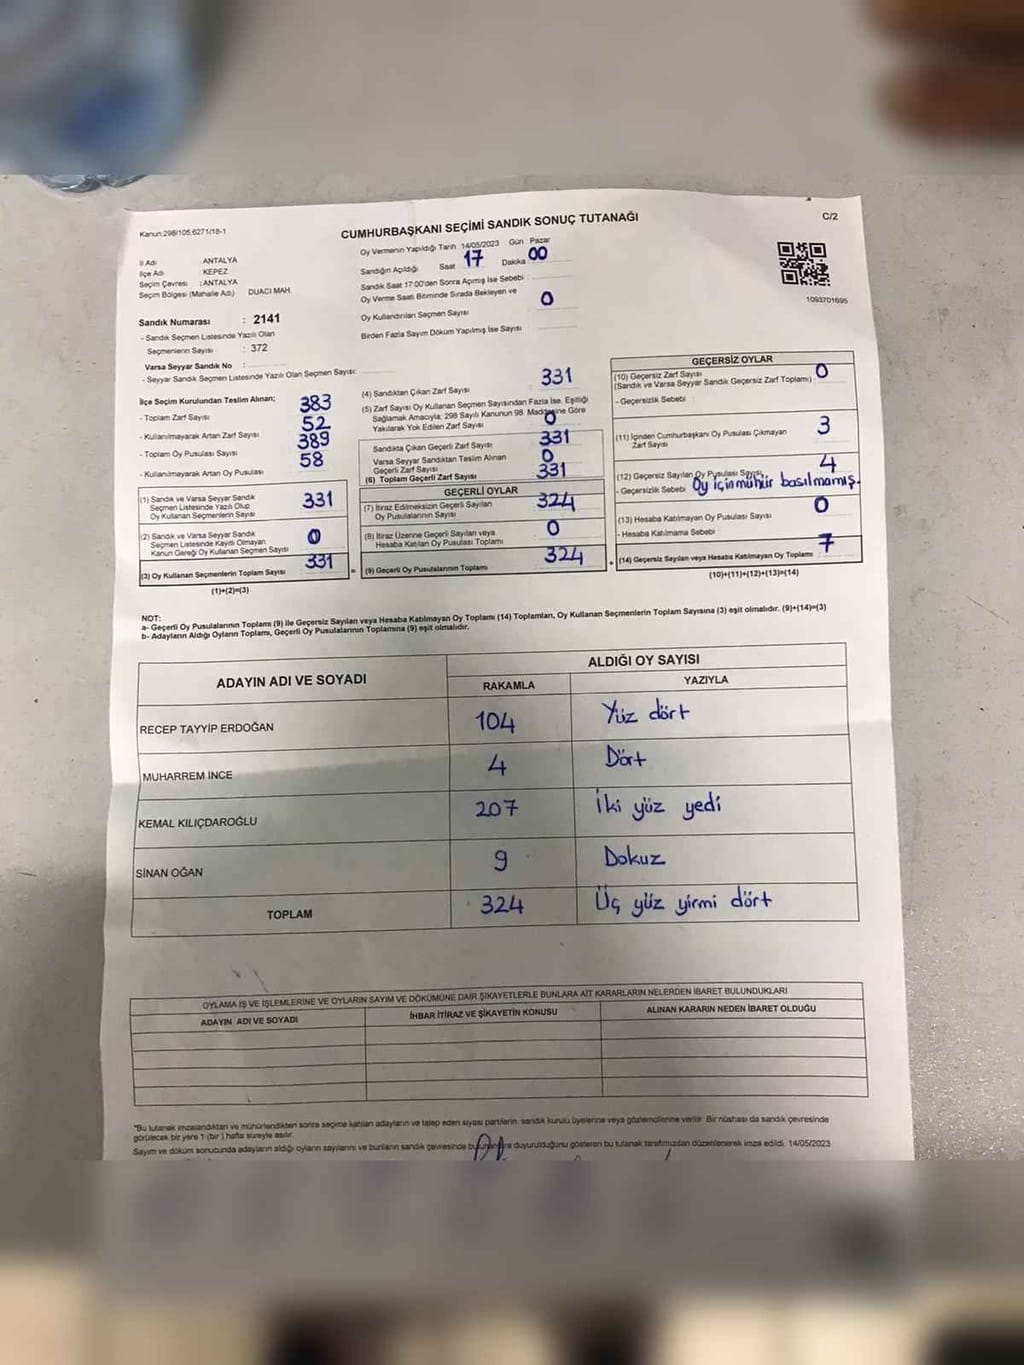 Kanun:298/105,6271/18-1
CUMHURBAŞKANI SEÇİMİ SANDIK SONUÇ TUTANAĞI
C/2
İl Adı : ANTALYA
İlçe Adı : KEPEZ
Seçim Çevresi : ANTALYA
Seçim Bölgesi (Mahalle Adı) DUACI MAH.
Sandık Numarası : 2141
- Sandık Seçmen Listesinde Yazılı Olan
Seçmenlerin Sayısı : 372
Varsa Seyyar Sandık No :
- Seyyar Sandık Seçmen Listesinde Yazılı Olan Seçmen Sayısı:
Oy Vermenin Yapıldığı Tarih :14/05/2023 Gün : Pazar
Sandığın Açıldığı Saat 17 Dakika 00
Sandık Saat 17:00'den Sonra Açılmış İse Sebebi :
Oy Verme Saati Bitiminde Sırada Bekleyen ve
Oy Kullandırılan Seçmen Sayısı 0
Birden Fazla Sayım Döküm Yapılmış İse Sayısı
1093701695
İlçe Seçim Kurulundan Teslim Alınan;
- Toplam Zarf Sayısı 383
- Kullanılmayarak Artan Zarf Sayısı 52
- Toplam Oy Pusulası Sayısı 389
- Kullanılmayarak Artan Oy Pusulası 58
(1) Sandık ve Varsa Seyyar Sandık
Seçmen Listesinde Yazılı Olup
Oy Kullanan Seçmenlerin Sayısı 331
(2) Sandık ve Varsa Seyyar Sandık
Seçmen Listesinde Kaydı Olmayan
Kanun Gereği Oy Kullanan Seçmen Sayısı 0
(3) Oy Kullanan Seçmenlerin Toplam Sayısı 331
(1)+(2)=(3)
(4) Sandıktan Çıkan Zarf Sayısı 331
(5) Zarf Sayısı Oy Kullanan Seçmen Sayısından Fazla İse, Eşitliği
Sağlamak Amacıyla; 298 Sayılı Kanunun 98. Maddesine Göre
Yakılarak Yok Edilen Zarf Sayısı 0
Sandıkta Çıkan Geçerli Zarf Sayısı 331
Varsa Seyyar Sandıktan Teslim Alınan
Geçerli Zarf Sayısı 0
(6) Toplam Geçerli Zarf Sayısı 331
GEÇERLİ OYLAR
(7) İtiraz Edilmeksizin Geçerli Sayılan
Oy Pusulalarının Sayısı 324
(8) İtiraz Üzerine Geçerli Sayılan veya
Hesaba Katılan Oy Pusulası Toplamı 0
= (9) Geçerli Oy Pusulalarının Toplamı 324
GEÇERSİZ OYLAR
(10) Geçersiz Zarf Sayısı 0
(Sandık ve Varsa Seyyar Sandık Geçersiz Zarf Toplamı)
- Geçersizlik Sebebi :
(11) İçinden Cumhurbaşkanı Oy Pusulası Çıkmayan
Zarf Sayısı 3
(12) Geçersiz Sayılan Oy Pusulası Sayısı 4
- Geçersizlik Sebebi Oy için mühür basılmamış.
(13) Hesaba Katılmayan Oy Pusulası Sayısı 0
- Hesaba Katılmama Sebebi :
+ (14) Geçersiz Sayılan veya Hesaba Katılmayan Oy Toplamı 7
(10)+(11)+(12)+(13)=(14)
NOT:
a- Geçerli Oy Pusulalarının Toplamı (9) ile Geçersiz Sayılan veya Hesaba Katılmayan Oy Toplamı (14) Toplamları, Oy Kullanan Seçmenlerin Toplam Sayısına (3) eşit olmalıdır. (9)+(14)=(3)
b- Adayların Aldığı Oyların Toplamı, Geçerli Oy Pusulalarının Toplamına (9) eşit olmalıdır.
ADAYIN ADI VE SOYADI ALDIĞI OY SAYISI
RAKAMLA YAZIYLA
RECEP TAYYİP ERDOĞAN 104 Yüz dört
MUHARREM İNCE 4 Dört
KEMAL KILIÇDAROĞLU 207 İki yüz yedi
SİNAN OĞAN 9 Dokuz
TOPLAM 324 Üç yüz yirmi dört
OYLAMA İŞ VE İŞLEMLERİNE VE OYLARIN SAYIM VE DÖKÜMÜNE DAİR ŞİKAYETLERLE BUNLARA AİT KARARLARIN NELERDEN İBARET BULUNDUKLARI
ADAYIN ADI VE SOYADI İHBAR İTİRAZ VE ŞİKAYETİN KONUSU ALINAN KARARIN NEDEN İBARET OLDUĞU
*Bu tutanak imzalandıktan ve mühürlendikten sonra seçime katılan adayların ve talep eden siyasi partilerin sandık kurulu üyelerine veya gözlemcilerine verilir. Bir nüshası da sandık çevresinde
görülecek bir yere 1 (bir ) hafta süreyle asılır.
Sayım ve döküm sonucunda adayların aldığı oyların sayılarını ve bunların sandık çevresinde duyurulduğunu gösteren bu tutanak tarafımızdan düzenlenerek imza edildi. 14/05/2023